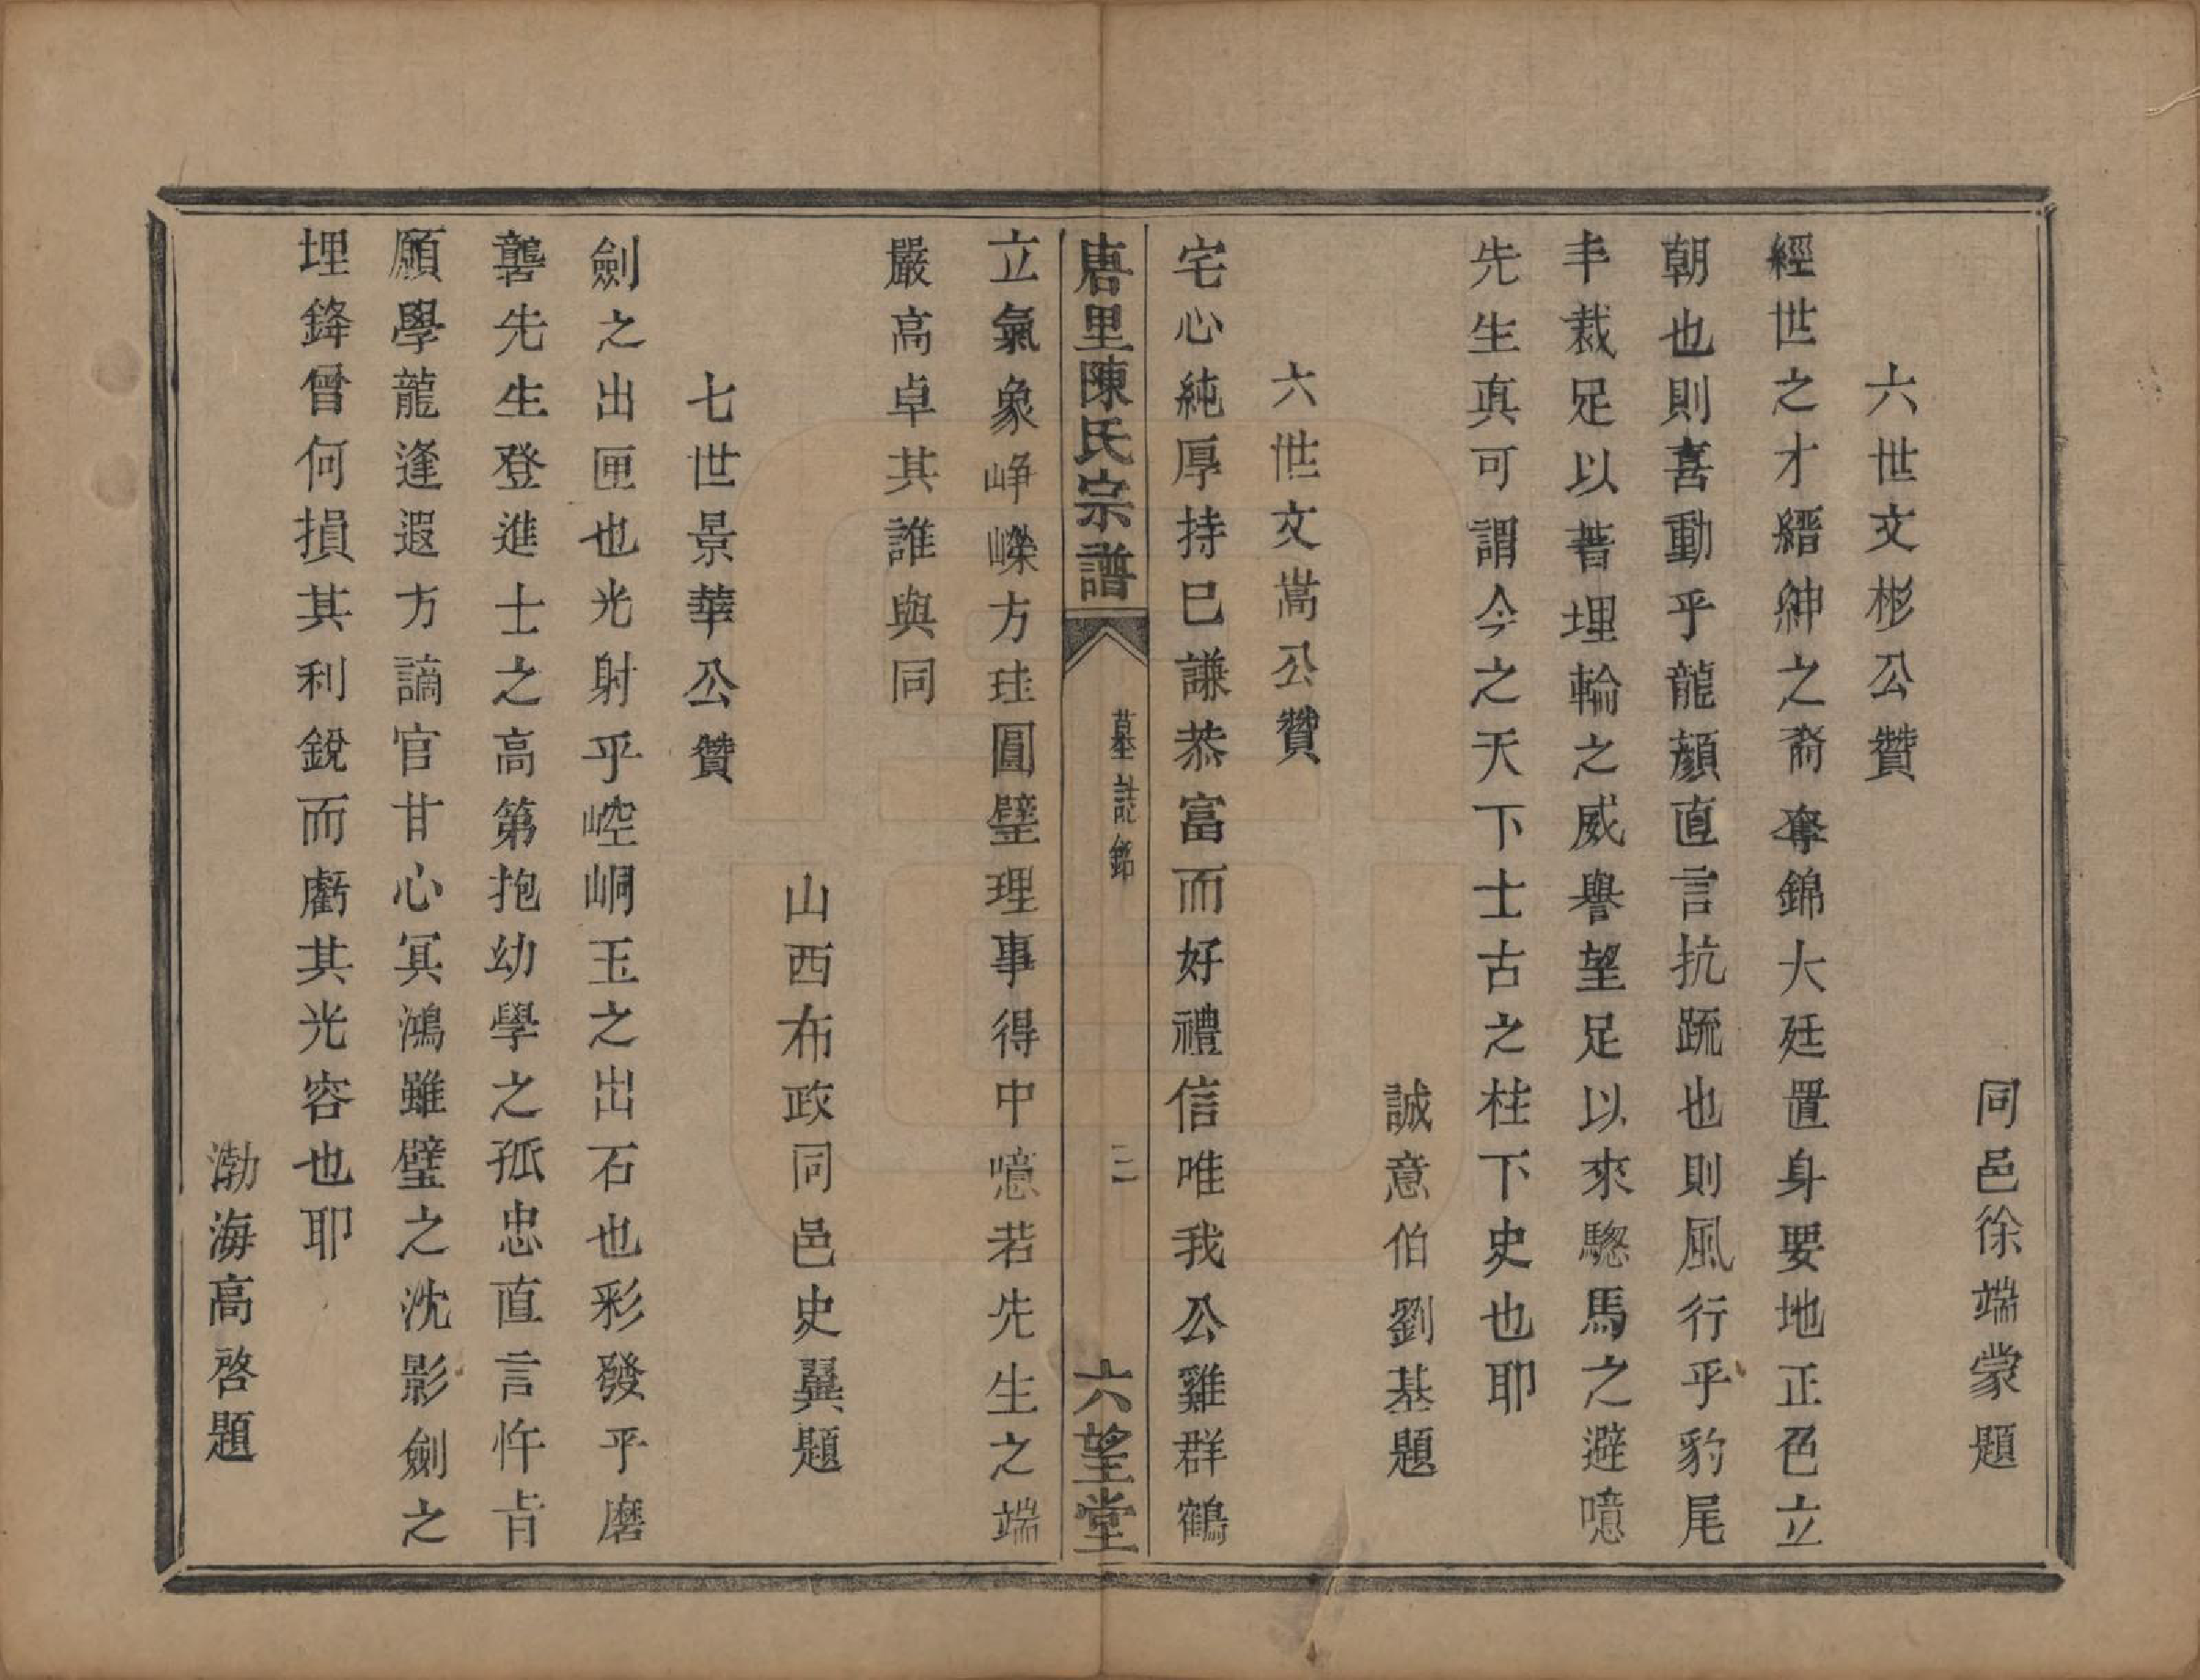 同邑徐端蒙題
六世文彬公贊
經世之才縉紳之裔奪錦大廷置身要地正色立
朝也則喜動乎龍顏直言抗疏也則風行乎豹尾
丰裁足以著埋輪之威譽望足以來驄馬之避噫
先生真可謂今之天下士古之柱下史也耶
誠意伯劉基題
六世文嵩公贊
宅心純厚持已謙恭富而好禮信唯我公雞群鶴
唐里陳氏宗譜
墓誌銘
二
六望堂
立氣象崢嶸方珪圓璧理事得中噫若先生之端
嚴高卓其誰與同
山西布政同邑史翼題
七世景華公贊
劍之出匣也光射乎崆峒玉之出石也彩發乎磨
礱先生登進士之高第抱幼學之孤忠直言忤㫖
願學龍逢遐方謫官甘心冥鴻雖璧之沈影劍之
埋鋒曾何損其利銳而虧其光容也耶
渤海高啓題